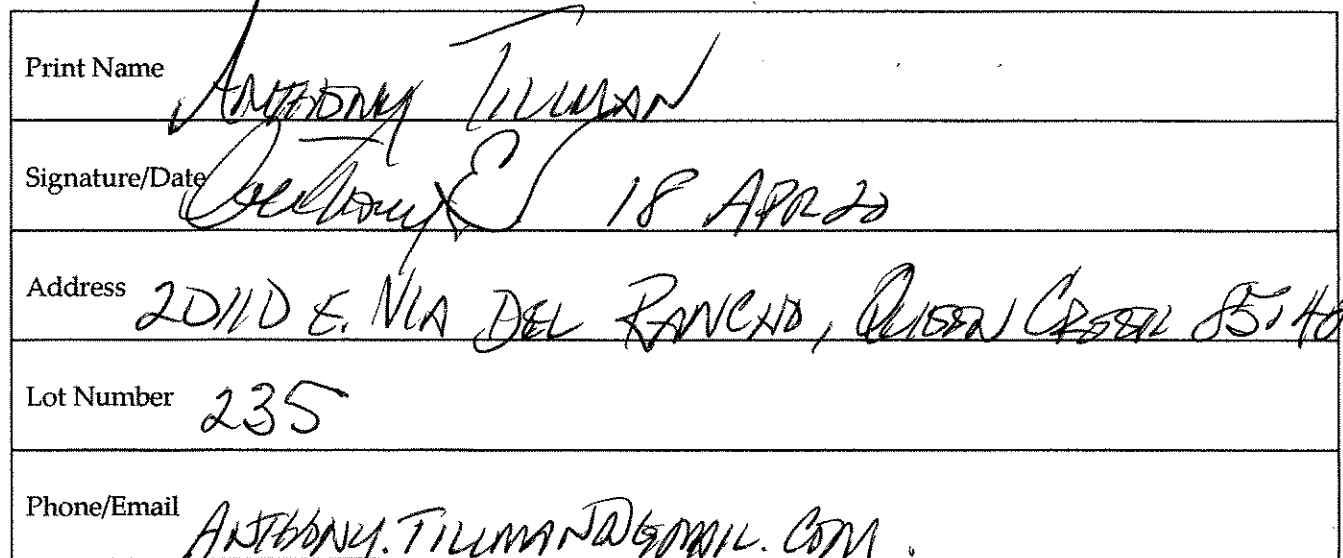 Print Name ANTHONY TILLMAN
Signature/Date Anthony E 18 APR 20
Address 20110 E. VIA DEL RANCHO, QUEEN CREEK
Lot Number 235
Phone/Email ANTHONY.TILLMAN@GMAIL.COM